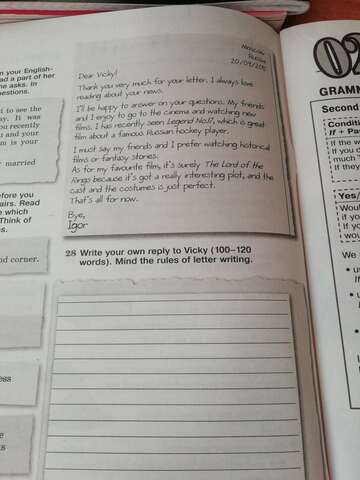 Moscow
Russia
Dear Vicky!
Thank you very much for your letter. I always love
reading about your news.
I'll be happy to answer on your questions. My friends
and I enjoy to go to the cinema and watching new
films. I has recently seen Legend No.17, which is great
film about a famous Russian hockey player.
I must say my friends and I prefer watching historical
films or fantasy stories.
As for my favourite film, it's surely The Lord of the
Rings because it's got a really interesting plot, and the
cast and the costumes is just perfect.
That's all for now.
Bye,
Igor
28 Write your own reply to Vicky (100–120
words). Mind the rules of letter writing.
n your English-
ad a part of her
he asks. In
estions.
t to see the
y. It was
ou recently
and your
m is your
married
efore you
airs. Read
e which
Think of
s.
nd corner.
ess
e
02
GRAMM
Second
Conditi
If + Pa
If the w
If you d
much
If they
Yes/
Woul
if you
If yo
wou
We
• u